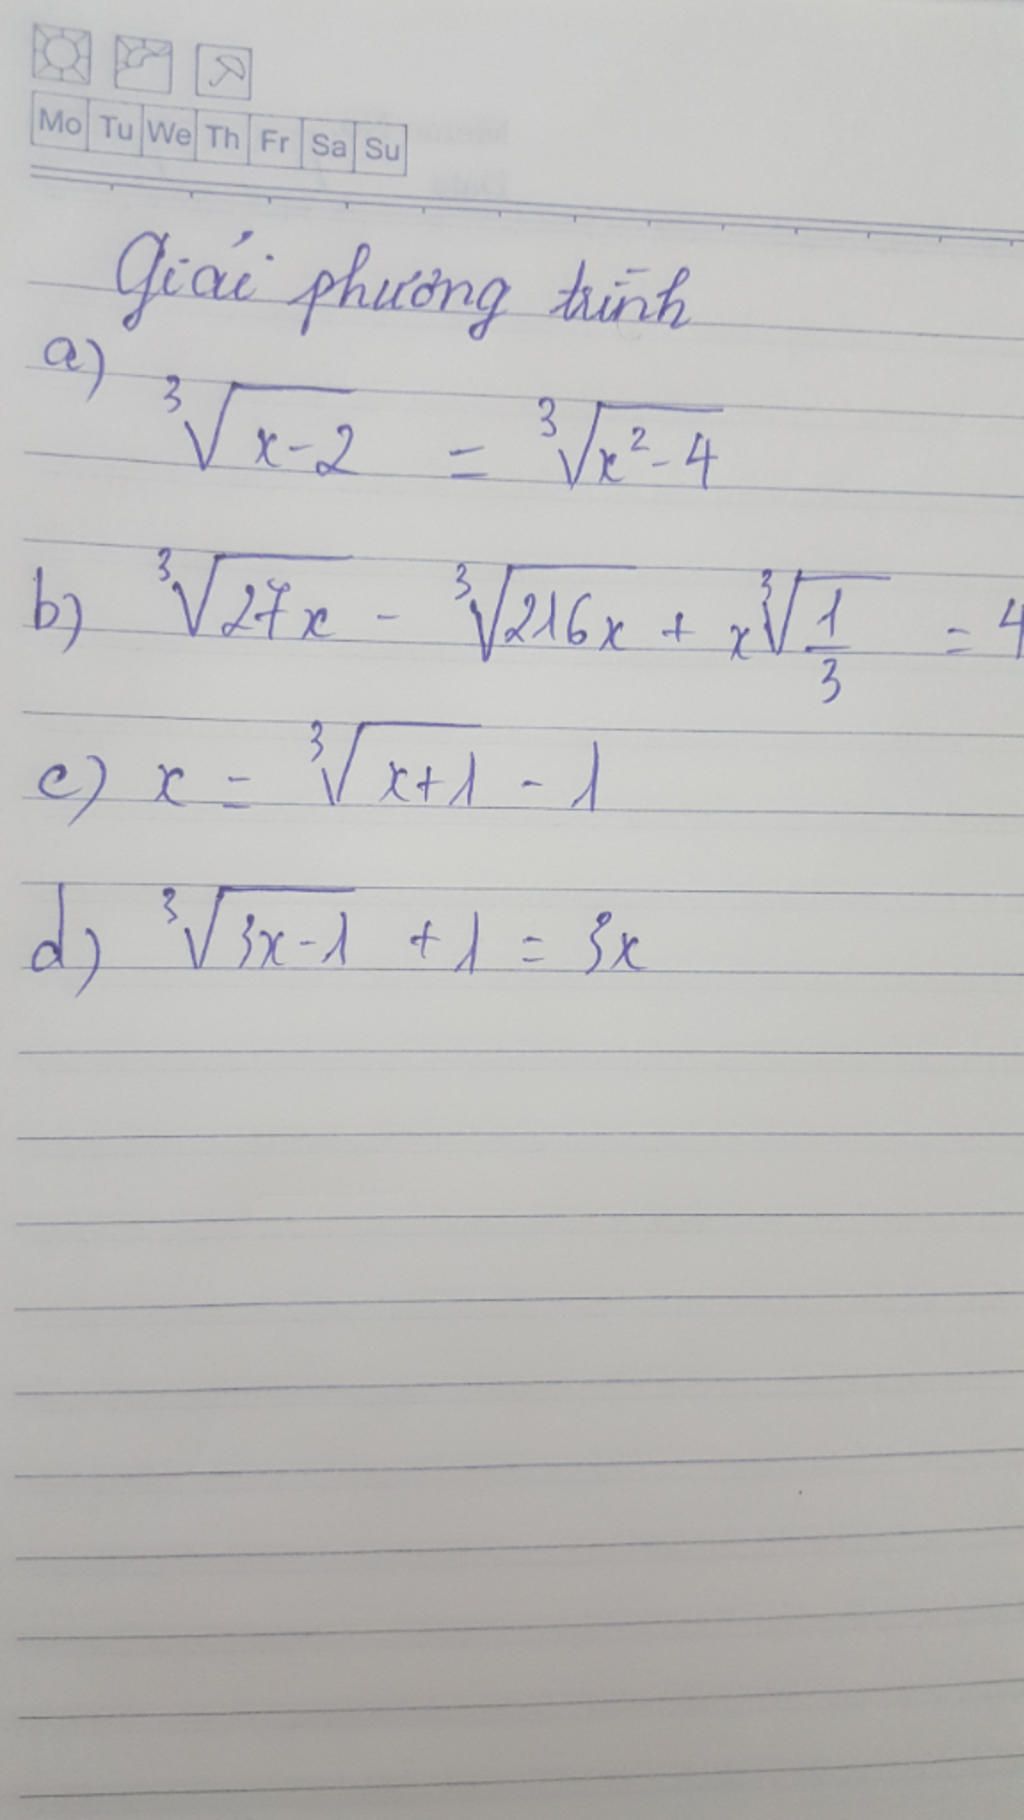 Mo Tu We Th Fr Sa Su
Giải phương trình
a) ∛(x-2) = ∛(x²-4)
b) ∛(27x) - ∛(216x) + x∛(1/3) = 4
c) x = ∛(x+1) - 1
d) ∛(3x-1) + 1 = 3x